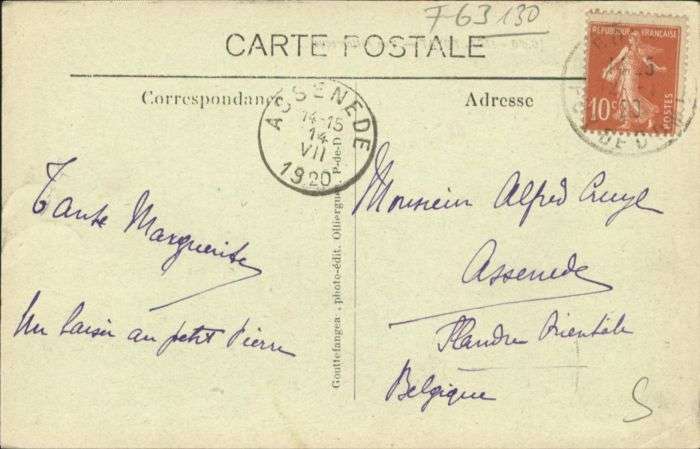 F63130
CARTE POSTALE
Correspondance
Adresse
REPUBLIQUE FRANÇAISE
10c
POSTES
ASSENEDE
14-15
14
VII
1920
Tante Marguerite
Un baiser au petit Pierre
Gouttefangea, photo-édit. Olliergues P-de-D
Monsieur Alfred
Assenede
Flandre Orientale
Belgique
S